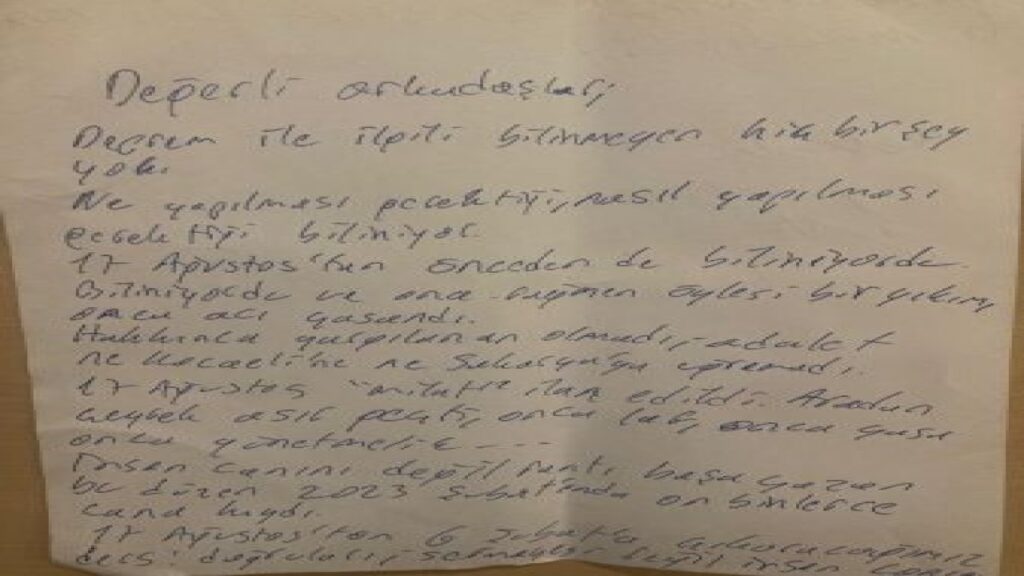 Değerli arkadaşlar,
Deprem ile ilgili bilinmeyen hiç bir şey
yok.
Ne yapılması gerektiği, nasıl yapılması
gerektiği biliniyor.
17 Ağustos'tan önceden de biliniyordu.
Biliniyordu ve ona rağmen öylesi bir yıkım,
onca acı yaşandı.
Hakkınca yargılanan olmadı, adalet
ne Kocaeli'ne ne Sakarya'ya uğramadı.
17 Ağustos "milat" ilan edildi. Aradan
çeyrek asır geçti, onca laf, onca yasa
onca yönetmelik ----
İnsan canını değil rantı başa yazan
bu düzen 2023 Şubat'ında on binlerce
cana kıydı.
17 Ağustos'tan 6 Şubat'a
ders: doğruları, insan